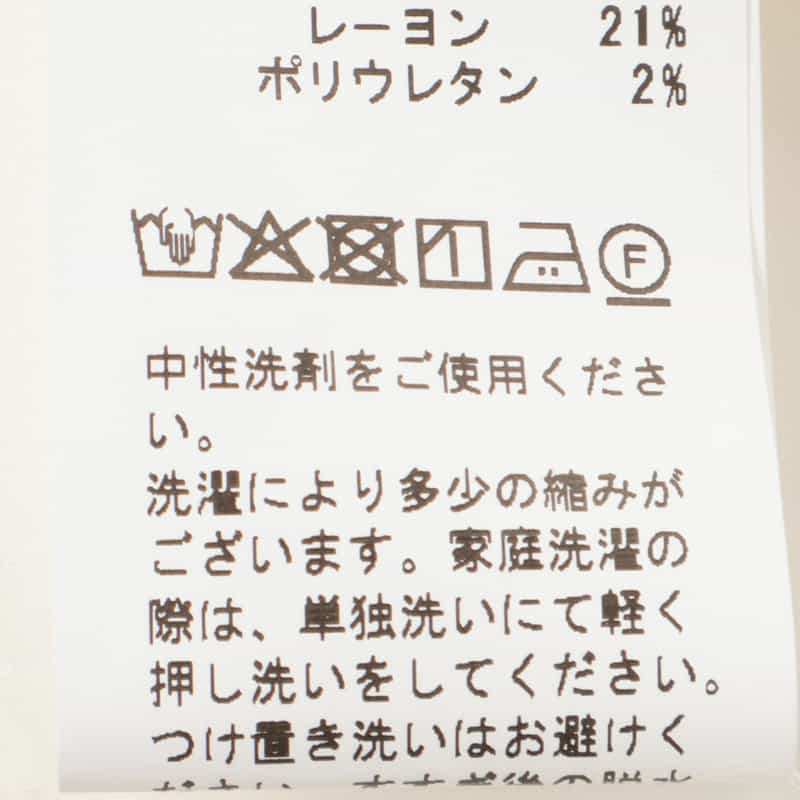 レーヨン 21%
ポリウレタン 2%
F
中性洗剤をご使用くださ
い。
洗濯により多少の縮みが
ございます。家庭洗濯の
際は、単独洗いにて軽く
押し洗いをしてください。
つけ置き洗いはお避けく